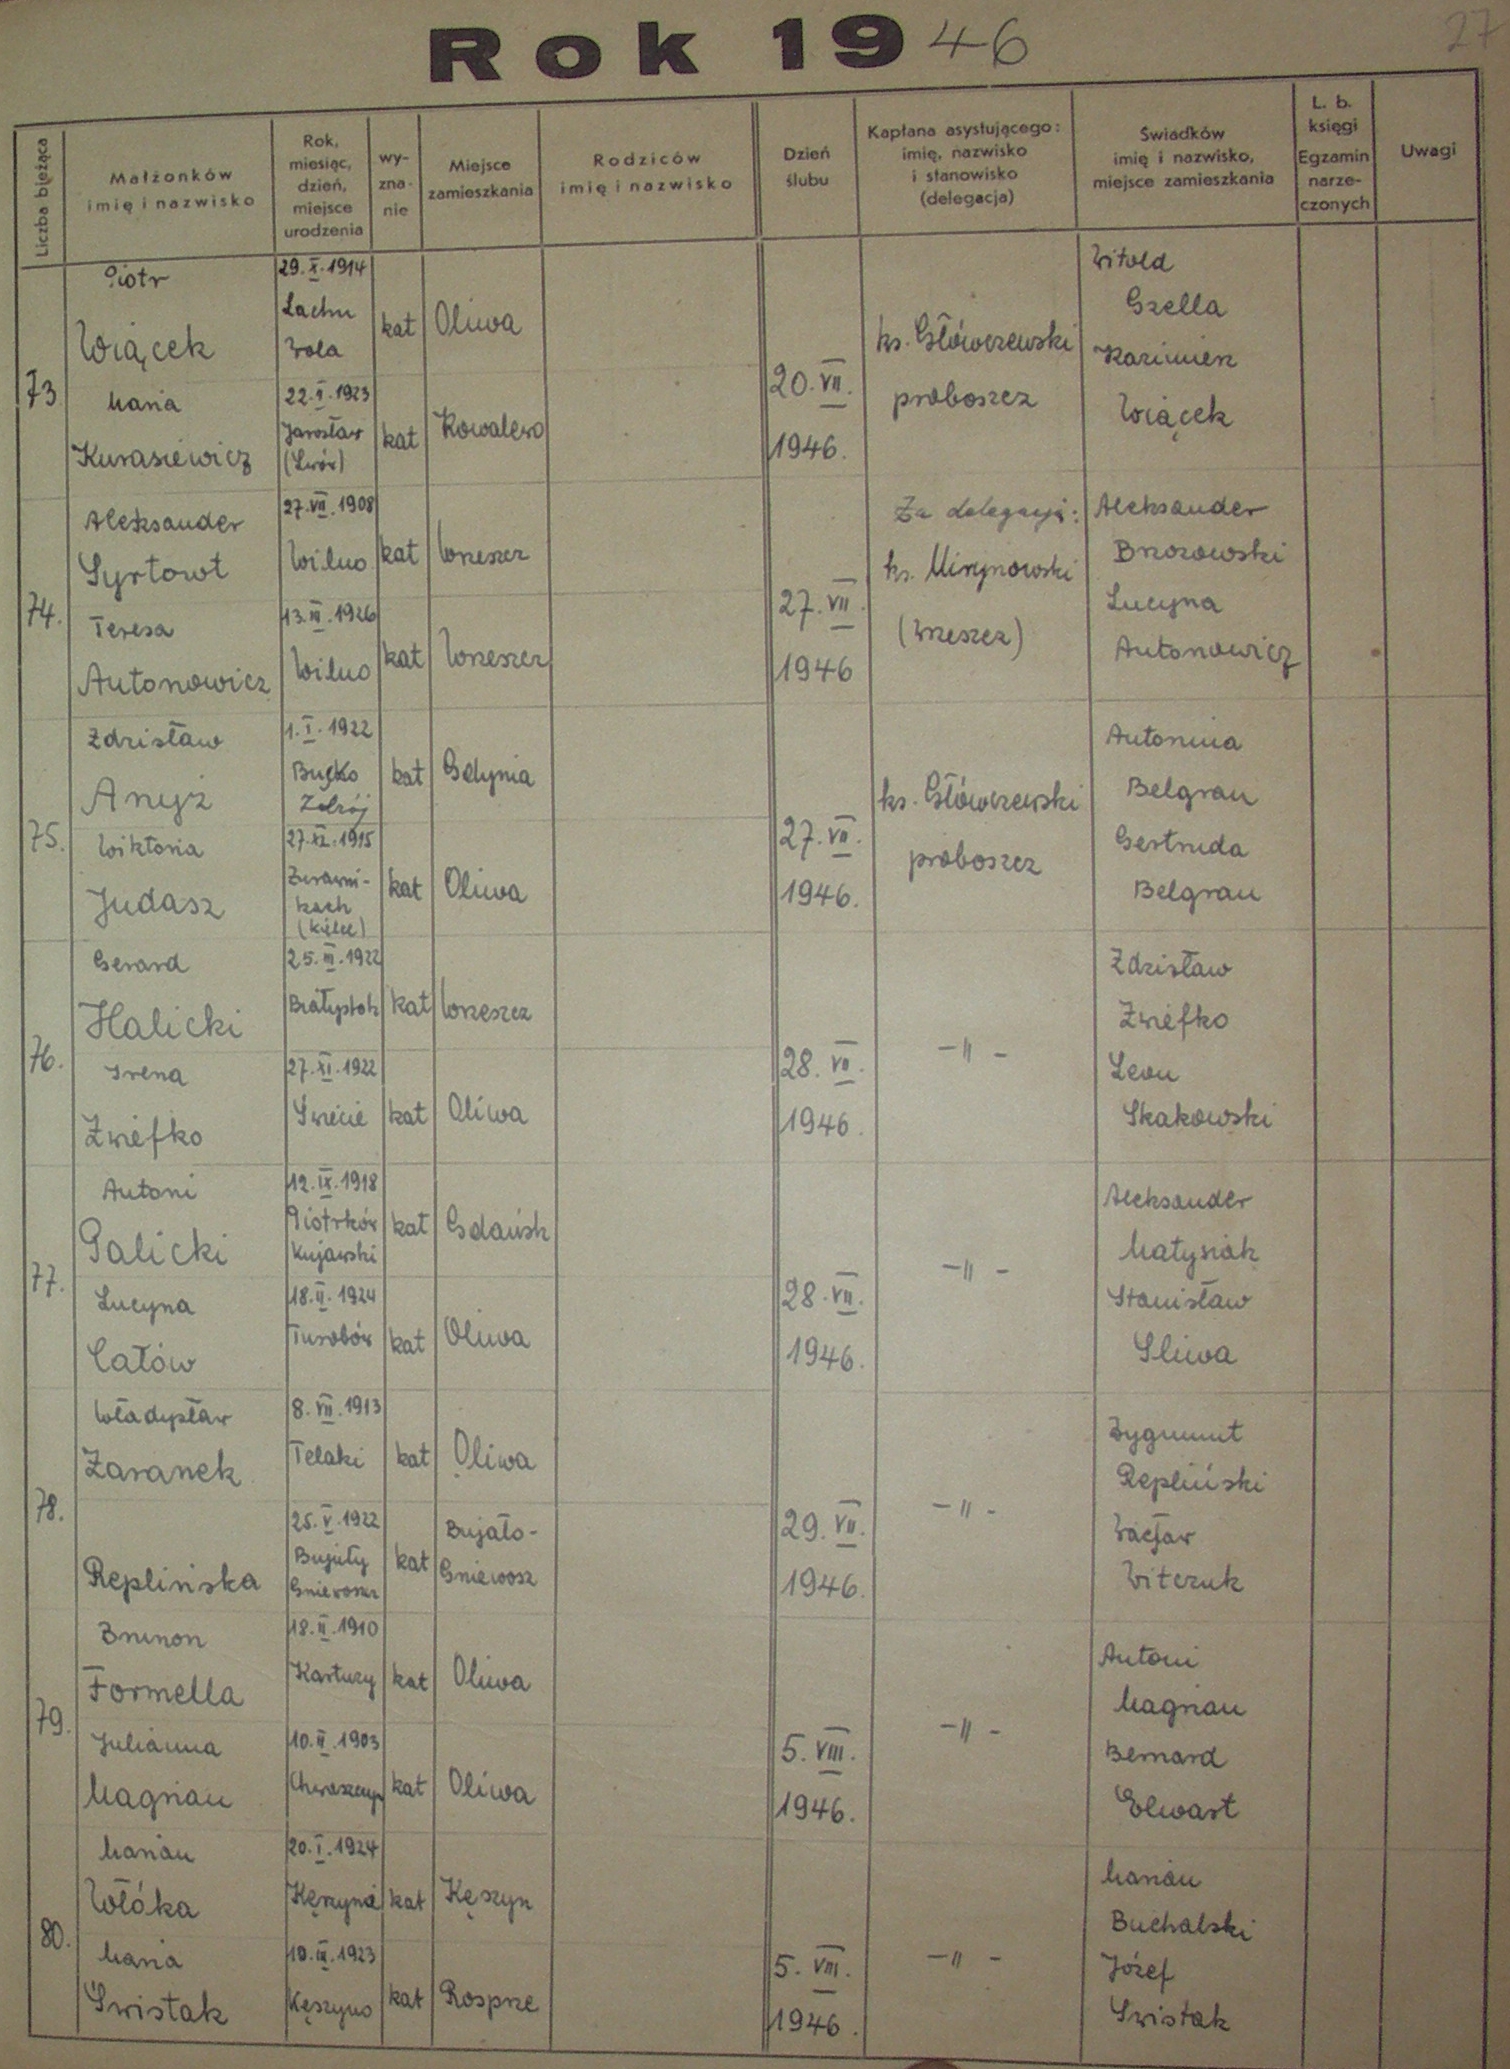 Rok 1946
27
Liczba bieżąca
Małżonków
imię i nazwisko
Rok,
miesiąc,
dzień,
miejsce
urodzenia
wy-
zna-
nie
Miejsce
zamieszkania
Rodziców
imię i nazwisko
Dzień
ślubu
Kapłana asystującego:
imię, nazwisko
i stanowisko
(delegacja)
Świadków
imię i nazwisko,
miejsce zamieszkania
L. b.
księgi
Egzamin
narze-
czonych
Uwagi
73
Piotr
Wiącek
29.X.1914
Lachu
Wola
kat
Oliwa
Maria
Kurasiewicz
1923
Jarosław
(Lwów)
kat
Kowalewo
20.VII.
1946.
ks. Główczewski
proboszcz
Witold
Gzella
Kazimierz
Wiącek
74.
Aleksander
Syrtowt
27.VII.1908
Wilno
kat
Wrzeszcz
Teresa
Antonowicz
13.III.1926
Wilno
kat
Wrzeszcz
27.VII.
1946
Za delegacją:
ks.
(Wrzeszcz)
Aleksander
Brzozowski
Lucyna
Antonowicz
75.
Zdzisław
Anyż
1.I.1922
Busko
Zdrój
kat
Gdynia
Wiktoria
Judasz
1915
(Kielce)
kat
Oliwa
27.VII.
1946.
ks. Główczewski
proboszcz
Antonina
Belgrau
Gertruda
Belgrau
76.
Gerard
Halicki
25.III.1922
Białystok
kat
Wrzeszcz
Irena
Zwiefko
27.XI.1922
Świecie
kat
Oliwa
28.VII.
1946.
-"-
Zdzisław
Zwiefko
Leon
Skakowski
77.
Antoni
Galicki
12.IX.1918
Piotrków
Kujawski
kat
Gdańsk
Lucyna
Całów
18.II.1924
Turobów
kat
Oliwa
28.VII.
1946.
-"-
Aleksander
Matysiak
Stanisław
Sliwa
78.
Władysław
Zaranek
8.VII.1913
Telaki
kat
Oliwa
Replińska
25.V.1922
Bujały
Gniewosz
kat
Bujało-
Gniewosz
29.VII.
1946.
-"-
Zygmunt
Repliński
Wacław
Witczuk
79.
Brunon
Formella
18.II.1910
Kartuzy
kat
Oliwa
Julianna
Magrian
10.II.1903
Chwaszczyn
kat
Oliwa
5.VIII.
1946.
-"-
Antoni
Magrian
Bernard
Elwart
80.
Marian
Włóka
20.I.1924
kat
Kęszyn
Maria
Swistak
10.III.1923
Kęszyno
kat
Rosprze
5.VIII.
1946.
-"-
Marian
Buchalski
Józef
Swistak